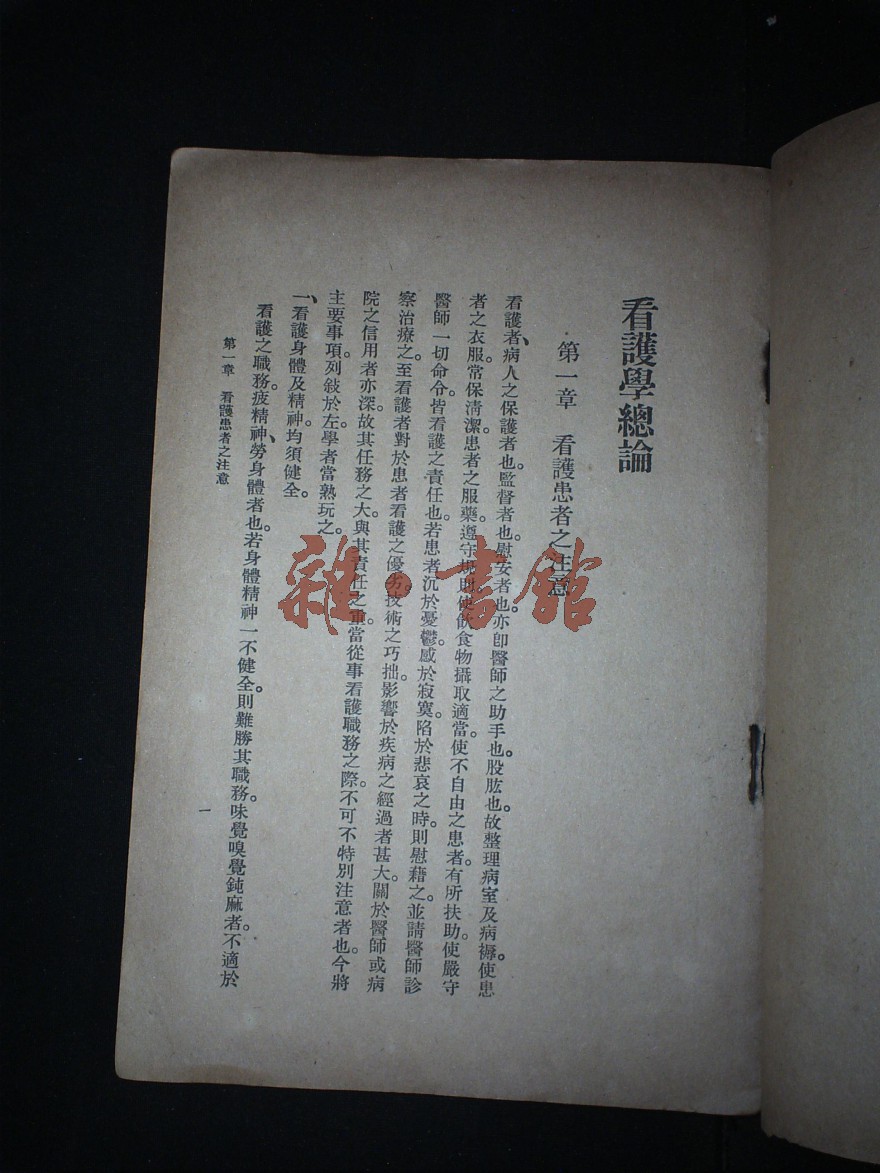 看護學總論
第一章　看護患者之注意
看護者、病人之保護者也。監督者也。慰安者也。亦卽醫師之助手也。股肱也。故整理病室及病褥。使患
者之衣服。常保淸潔。患者之服藥。遵守規則。使飮食物攝取適當。使不自由之患者。有所扶助。使嚴守
醫師一切命令。皆看護之責任也。若患者沉於憂鬱。感於寂寞。陷於悲哀之時。則慰藉之。並請醫師診
察治療之。至看護者對於患者看護之優劣。技術之巧拙。影響於疾病之經過者甚大。關於醫師或病
院之信用者亦深。故其任務之大。與其責任之重。當從事看護職務之際。不可不特別注意者也。今將
主要事項。列敍於左。學者當熟玩之。
一、看護身體及精神。均須健全。
看護之職務。疲精神、勞身體者也。若身體精神一不健全。則難勝其職務。味覺嗅覺鈍麻者。不適於
第一章　看護患者之注意
一
雜·書館